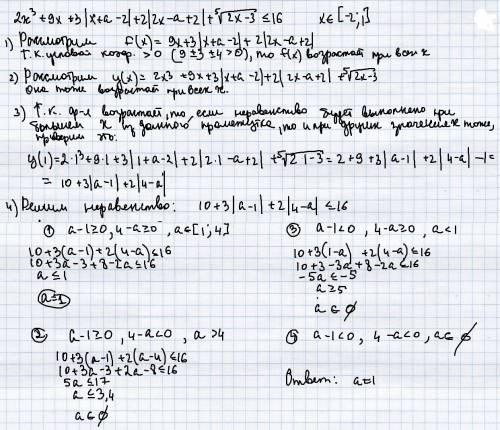 2x³ + 9x + 3|x+a-2| + 2|2x-a+2| + ⁵√2x-3 ≤ 16 x∈[-2;1]
1) Рассмотрим f(x) = 9x+3|x+a-2| + 2|2x-a+2|
Т.к. угловой коэф. > 0 (9±3±4>0), то f(x) возрастает при всех x
2) Рассмотрим y(x) = 2x³ + 9x + 3|x+a-2| + 2|2x-a+2| + ⁵√2x-3
Она тоже возрастает при всех x.
3) Т.к. ф-я возрастает, то если неравенство будет выполнено при
большем x из данного промежутка, то и при других значениях x тоже,
проверим это.
y(1) = 2·1³ + 9·1 + 3|1+a-2| + 2|2·1-a+2| + ⁵√2·1-3 = 2+9+3|a-1| + 2|4-a| -1 =
= 10+3|a-1| + 2|4-a|
4) Решим неравенство: 10+3|a-1| + 2|4-a| ≤ 16
① a-1≥0, 4-a≥0, a∈[1;4]
10+3(a-1)+2(4-a) ≤ 16
10+3a-3+8-2a ≤ 16
a ≤ 1
a=1
② a-1≥0, 4-a<0, a>4
10+3(a-1)+2(a-4) ≤ 16
10+3a-3+2a-8 ≤ 16
5a ≤ 17
a ≤ 3,4
a∈∅
③ a-1<0, 4-a≥0, a<1
10+3(1-a)+2(4-a) ≤ 16
10+3-3a+8-2a ≤ 16
-5a ≤ -5
a ≥ 5
a∈∅
④ a-1<0, 4-a<0, a∈∅
Ответ: a=1